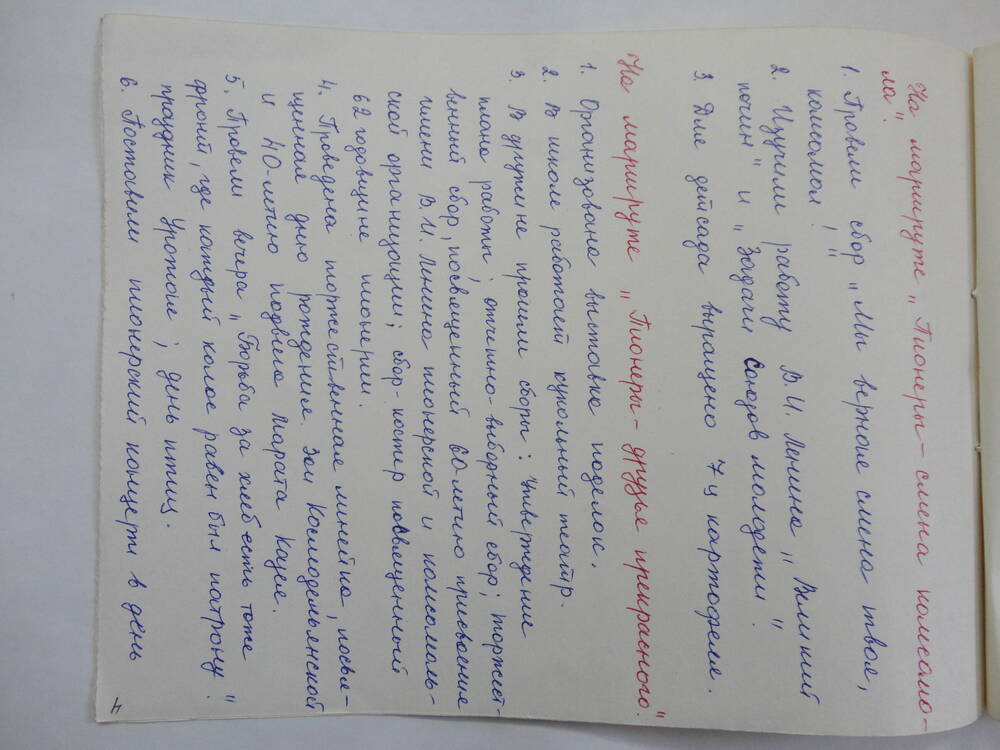 На маршруте „Пионеры – смена комсомо-
ла".
1. Провели сбор „Мы верные смена твоя,
комсомол!"
2. Изучили работу В.И. Ленина „Великий
почин" и „Задачи Союзов молодежи".
3. Для детсада выращено 7 ц картофеля.
На маршруте „Пионеры – друзья прекрасного".
1. Организована выставка поделок.
2. В школе работает кукольный театр.
3. В дружине прошли сборы: Утверждение
плана работы; отчетно-выборный сбор; торжест-
венный сбор, посвященный 60-летию присвоения
имени В.И. Ленина пионерской и комсомоль-
ской организации; сбор-костер посвященный
62 годовщине пионерии.
4. Проведена торжественная линейка, посвя-
щенная дню рождения Зои Космодемьянской
и 40-летию подвига Марата Казея.
5. Провели вечера „Борьба за хлеб есть тоже
фронт, где каждый колос равен был патрону";
праздник Урожая; день птиц.
6. Поставили пионерский концерт в день
4